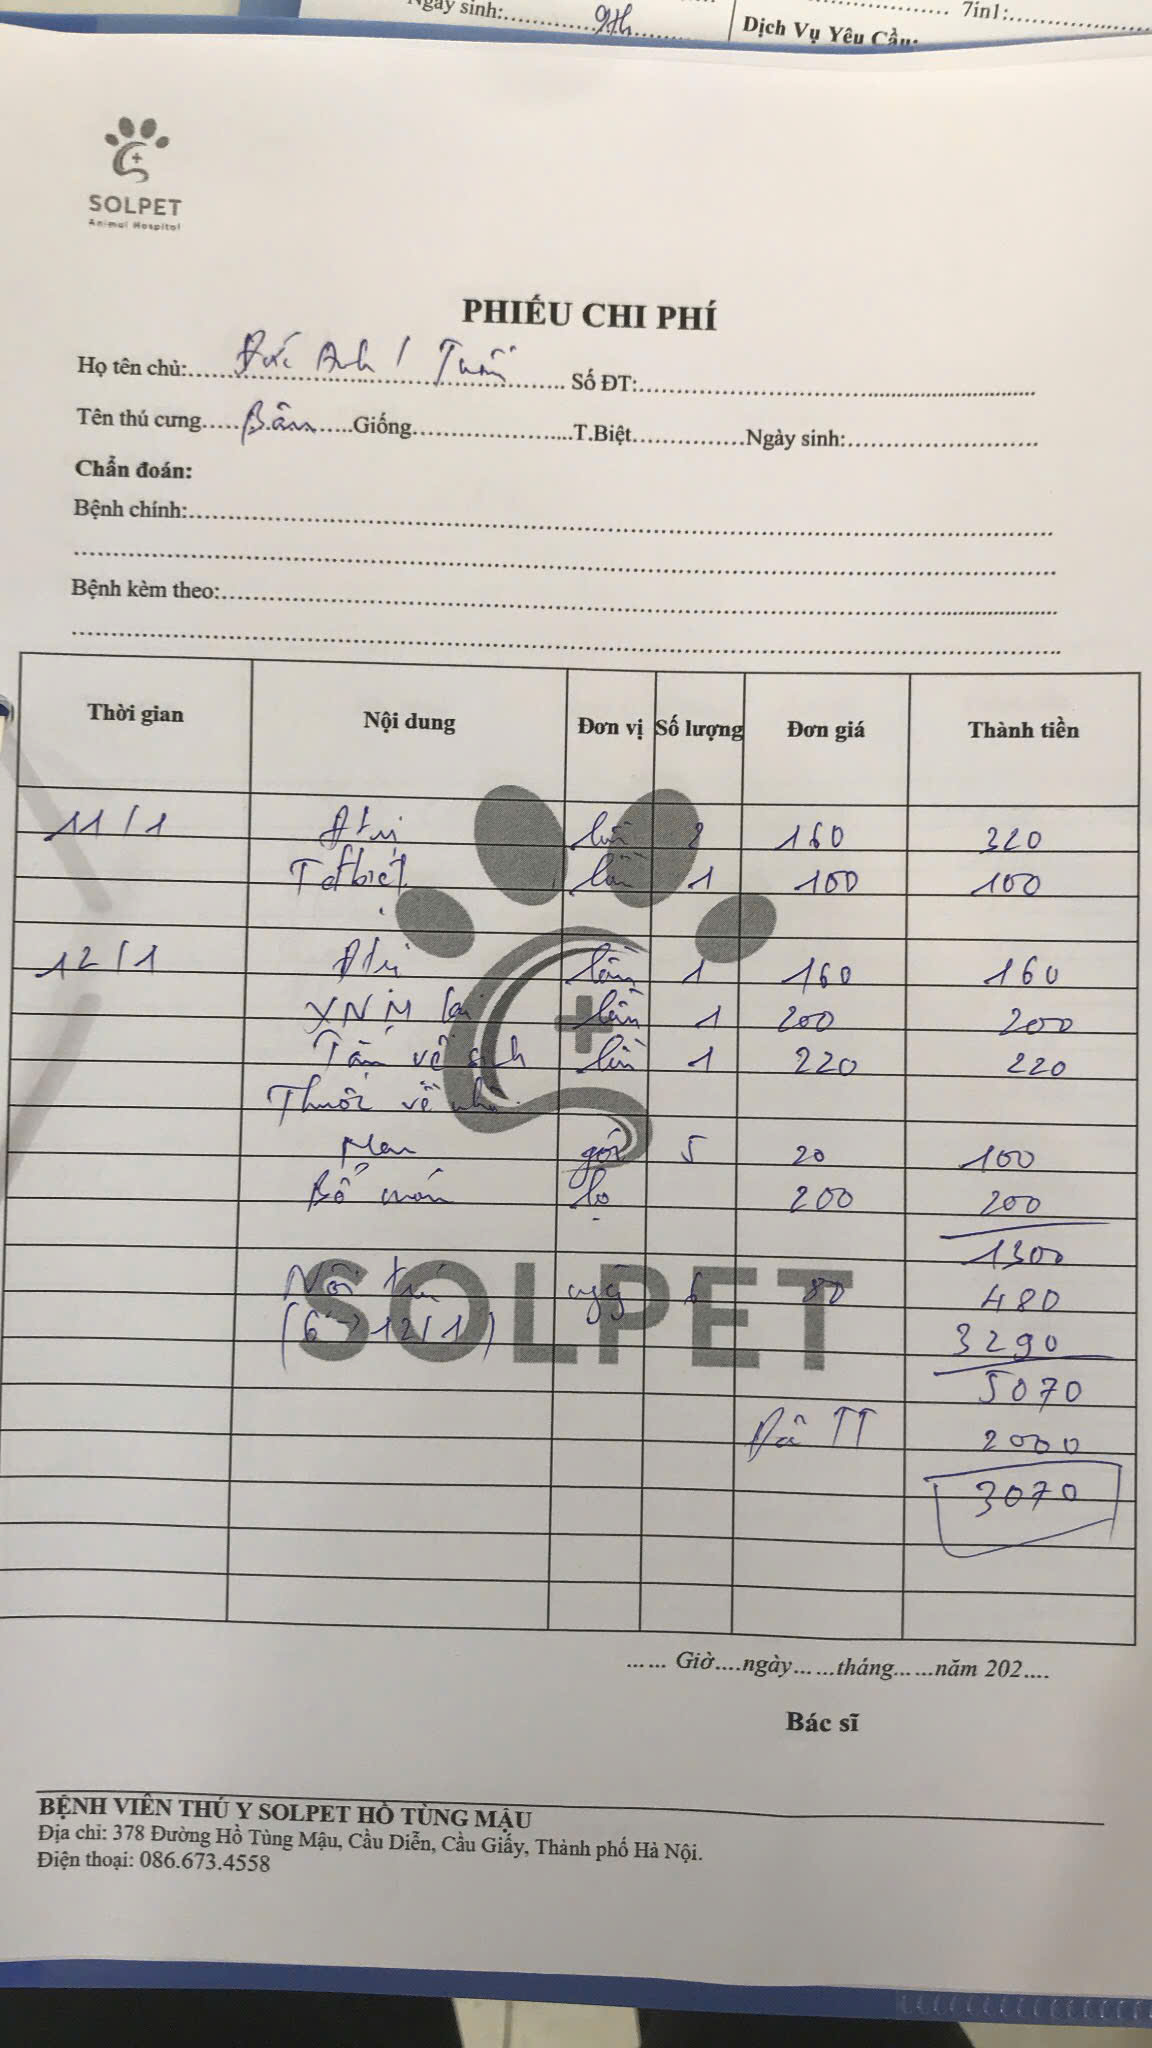 Ngày sinh:............9th............
7in1:...................
Dịch Vụ Yêu Cầu:
SOLPET
Animal Hospital
PHIẾU CHI PHÍ
Họ tên chủ:..... Đức Anh / Tuấn ..... Số ĐT:...............
Tên thú cưng..... Bân .....Giống...............T.Biệt...............Ngày sinh:...............
Chẩn đoán:
Bệnh chính:...............
Bệnh kèm theo:...............
Thời gian Nội dung Đơn vị Số lượng Đơn giá Thành tiền
11/1 Đtrị lần 2 160 320
T đbiệt lần 1 100 100
12/1 Đtrị lần 1 160 160
XNM lại lần 1 200 200
Tắm vệ sinh lần 1 220 220
Thuốc về nhà
Men gói 5 20 100
Bổ máu lọ 200 200
1300
Nội trú ngày 6 80 480
(6 → 12/1) 3290
5070
Đã TT 2000
3070
...... Giờ....ngày......tháng......năm 202....
Bác sĩ
SOLPET
BỆNH VIÊN THÚ Y SOLPET HỒ TÙNG MẬU
Địa chỉ: 378 Đường Hồ Tùng Mậu, Cầu Diễn, Cầu Giấy, Thành phố Hà Nội.
Điện thoại: 086.673.4558